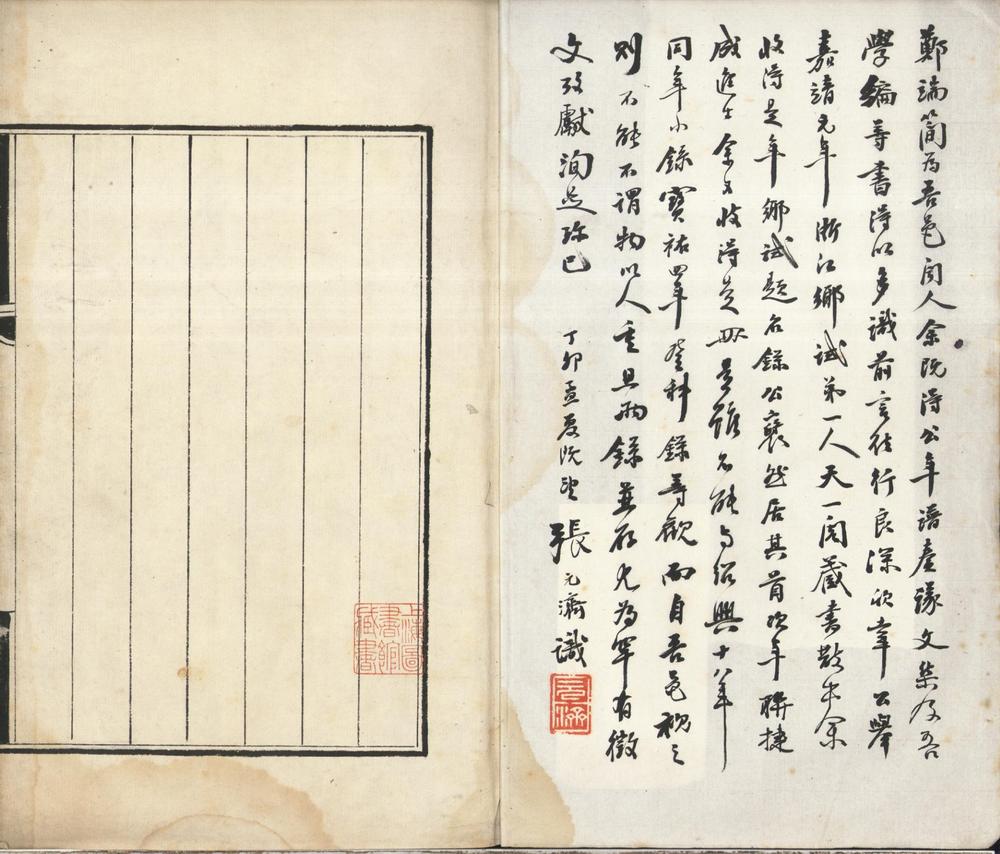 鄭端簡為吾邑聞人余既得公年譜文集及吾
學編等書得以多識前言往行良深欣幸公舉
嘉靖元年浙江鄉試第一人天一閣藏書散出余
收得是年鄉試題名錄公裒然居其首次年聯捷
成進士余又收得是冊是雖不能與紹興十八年
同年小錄寶祐四年登科錄等觀而自吾邑視之
則不能不謂物以人重且兩錄並存尤為罕有徵
文攷獻洵足珍已　丁卯孟夏既望張元濟識
上海圖
書館
藏書